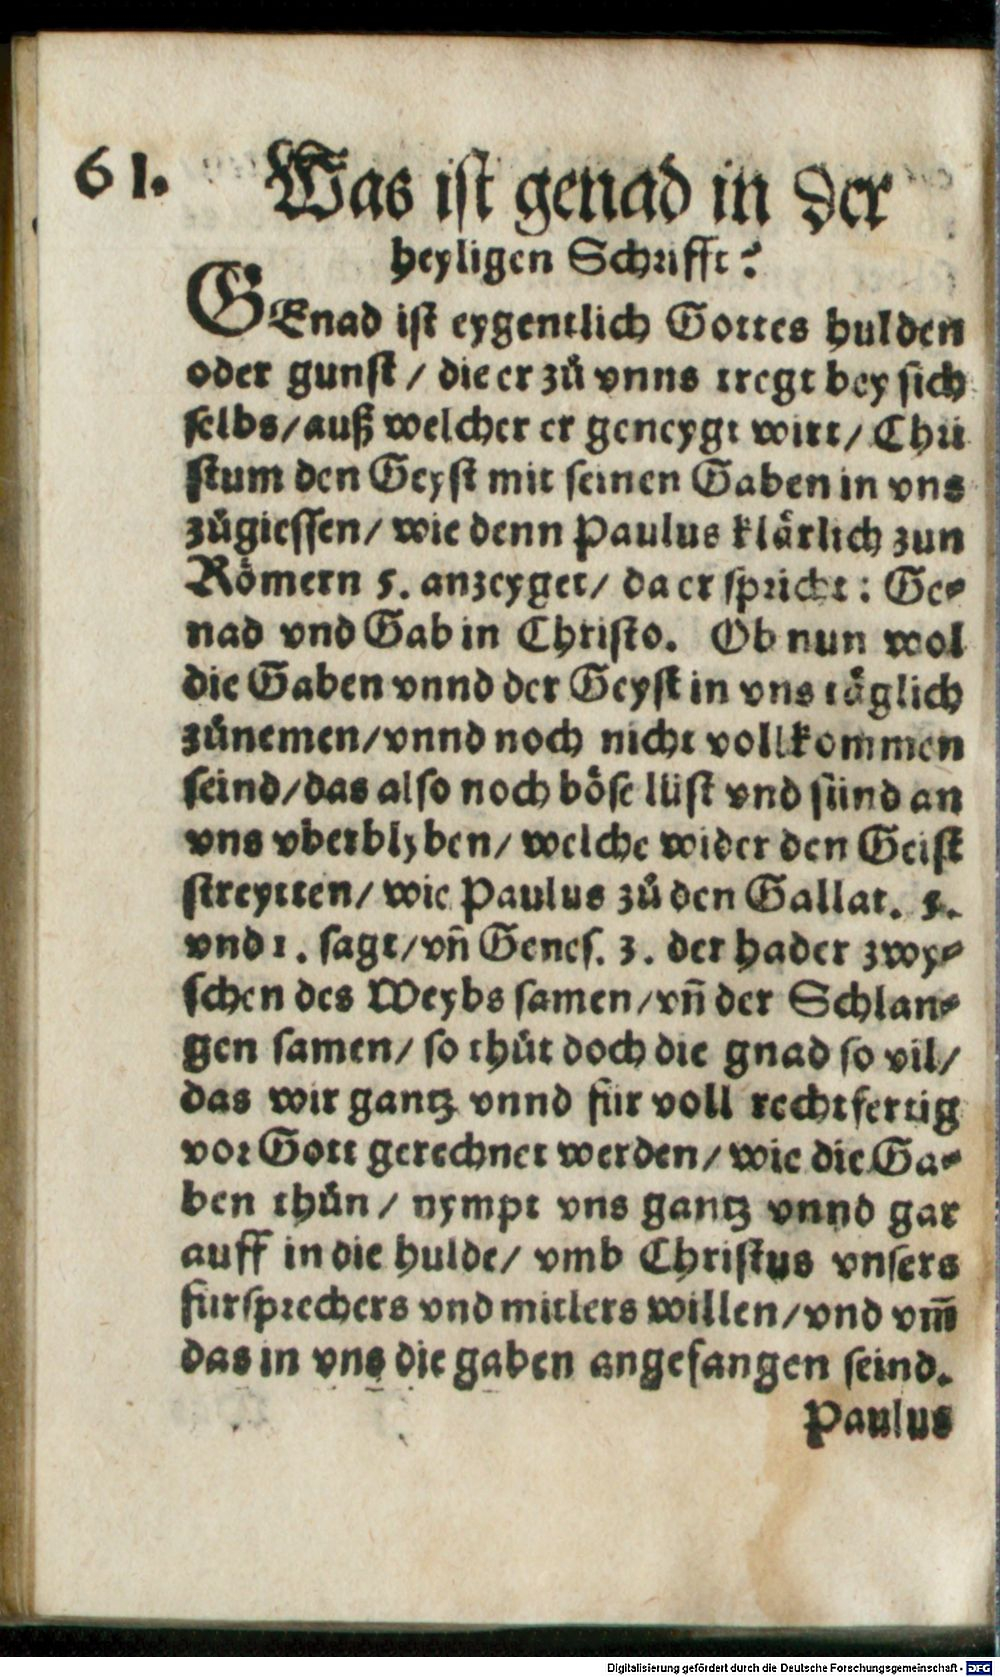 61. Was ist genad in der
heyligen Schrifft?
GEnad ist eygentlich Gottes hulden
oder gunst / die er zů vnns tregt bey sich
selbs/auß welcher er geneygt wirt/ Chri
stum den Geyst mit seinen Gaben in vns
zůgiessen/ wie denn Paulus klärlich zun
Römern 5. anzeyget/ da er spricht: Ge-
nad vnd Gab in Christo. Ob nun wol
die Gaben vnnd der Geyst in vns täglich
zůnemen/vnnd noch nicht vollkommen
seind/das also noch böse lüst vnd sünd an
vns vberblyben/ welche wider den Geist
streytten/ wie Paulus zů den Gallat. 5.
vnd 1. sagt/vñ Genes. 3. der hader zwy-
schen des Weybs samen/vñ der Schlan-
gen samen/ so thůt doch die gnad so vil/
das wir gantz vnnd für voll rechtfertig
vor Gott gerechnet werden/ wie die Ga-
ben thůn / nympt vns gantz vnnd gar
auff in die hulde/ vmb Christus vnsers
fürsprechers vnd mitlers willen/vnd vm̄
das in vns die gaben angefangen seind.
Paulus
Digitalisierung gefördert durch die Deutsche Forschungsgemeinschaft - DFG